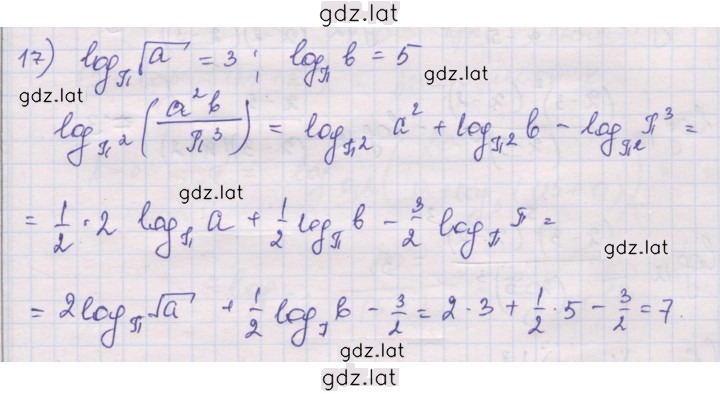 gdz.lat
17) log_π √a = 3 ; log_π b = 5
gdz.lat
gdz.lat
log_π² (a²b / π³) = log_π² a² + log_π² b − log_π² π³ =
gdz.lat
= 1/2 · 2 log_π a + 1/2 log_π b − 3/2 log_π π =
gdz.lat
= 2 log_π √a + 1/2 log_π b − 3/2 = 2 · 3 + 1/2 · 5 − 3/2 = 7.
gdz.lat
gdz.lat